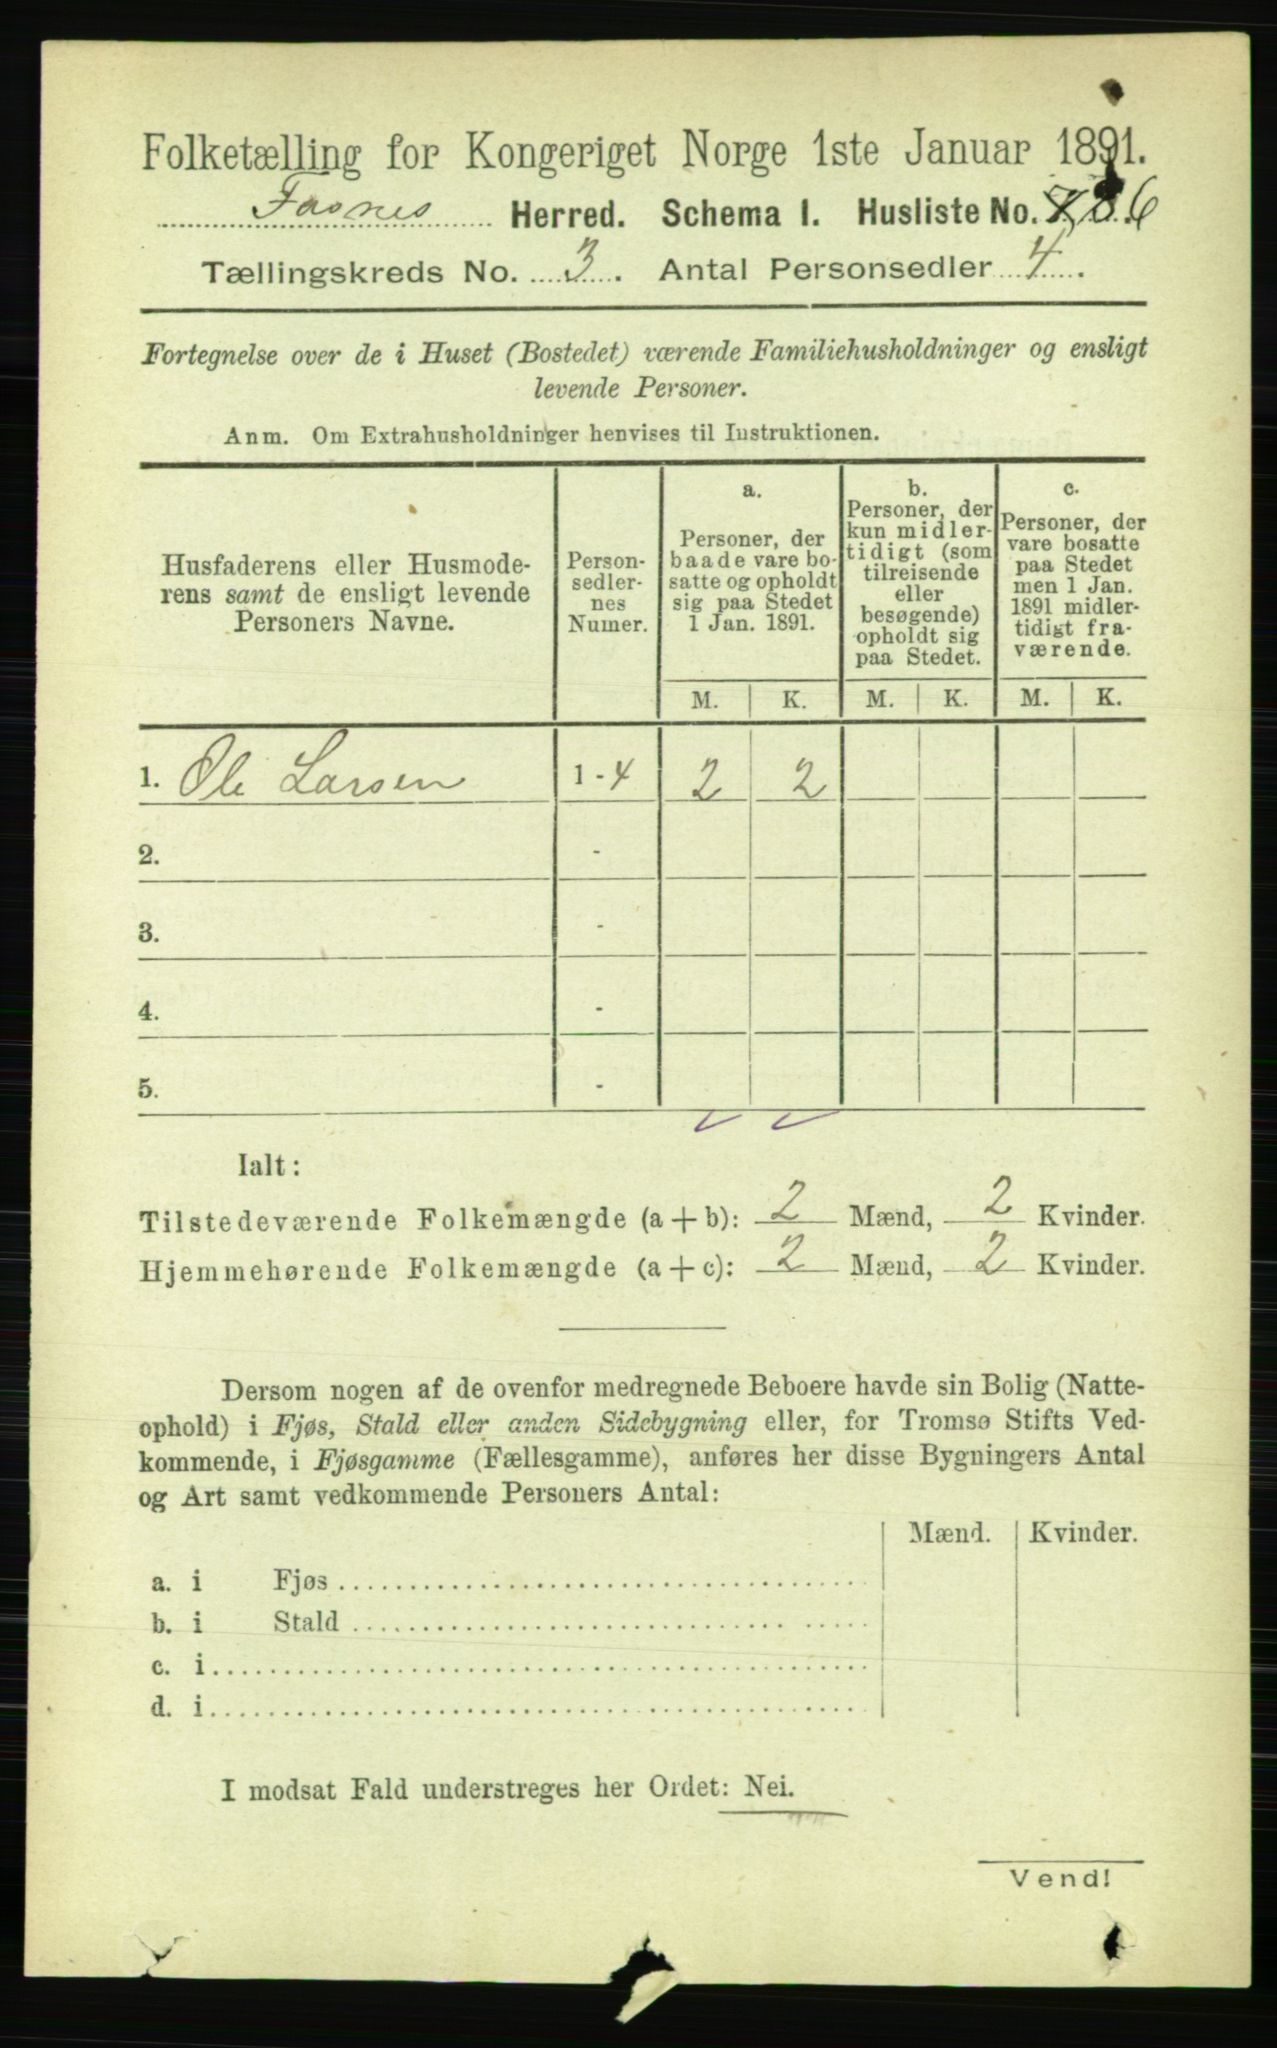 Folketælling for Kongeriget Norge 1ste Januar 1891.
Fosnes Herred. Schema I. Husliste No. 86
Tællingskreds No. 3. Antal Personsedler 4.
Fortegnelse over de i Huset (Bostedet) værende Familiehusholdninger og ensligt
levende Personer.
Anm. Om Extrahusholdninger henvises til Instruktionen.
Husfaderens eller Husmode-
rens samt de ensligt levende
Personers Navne.
Person-
sedler-
nes
Numer.
a.
Personer, der
baade vare bo-
satte og opholdt
sig paa Stedet
1 Jan. 1891.
b.
Personer, der
kun midler-
tidigt (som
tilreisende
eller
besøgende)
opholdt sig
paa Stedet.
c.
Personer, der
vare bosatte
paa Stedet
men 1 Jan.
1891 midler-
tidigt fra-
værende.
M. K. M. K. M. K.
1. Ole Larsen 1 - 4 2 2
2. -
3. -
4. -
5. -
Ialt:
Tilstedeværende Folkemængde (a + b): 2 Mænd, 2 Kvinder.
Hjemmehørende Folkemængde (a + c): 2 Mænd, 2 Kvinder.
Dersom nogen af de ovenfor medregnede Beboere havde sin Bolig (Natte-
ophold) i Fjøs, Stald eller anden Sidebygning eller, for Tromsø Stifts Ved-
kommende, i Fjøsgamme (Fællesgamme), anføres her disse Bygningers Antal
og Art samt vedkommende Personers Antal:
Mænd. Kvinder.
a. i Fjøs
b. i Stald
c. i
d. i
I modsat Fald understreges her Ordet: Nei.
Vend!